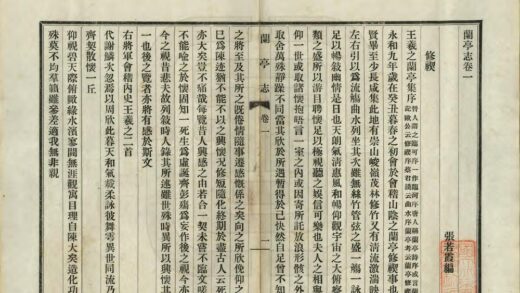 蘭亭志卷一
修禊
張若霞編
王羲之蘭亭集序
永和九年歲在癸丑暮春之初會於會稽山陰之蘭亭修禊事也
賢畢至少長咸集此地有崇山峻嶺茂林修竹又有清流激湍映
左右引以爲流觴曲水列坐其次雖無絲竹管弦之盛一觴一詠
足以暢敍幽情是日也天朗氣清惠風和暢仰觀宇宙之大俯察
類之盛所以游目騁懷足以極視聽之娛信可樂也夫人之相與
仰一世或取諸懷抱晤言一室之內或因寄所託放浪形骸之外
取舍萬殊靜躁不同當其欣於所遇暫得於己快然自足曾不知
蘭亭志 卷一 一
之將至及其所之既倦情隨事遷感慨係之矣向之所欣俛仰之
已爲陳迹猶不能不以之興懷况修短隨化終期於盡古人云死
亦大矣豈不痛哉每覽昔人興感之由若合一契未嘗不臨文嗟
不能喻之於懷固知一死生爲虛誕齊彭殤爲妄作後之視今亦
今之視昔悲夫故列敍時人錄其所述雖世殊時異所以興懷其
一也後之覽者亦將有感於斯文
右將軍會稽內史王羲之二首
代謝鱗次忽焉以周欣此暮春和氣載柔詠彼舞雩異世同流乃
齊契散懷一丘
仰視碧天際俯瞰綠水濱寥闃無涯觀寓目理自陳大矣造化功
殊莫不均羣籟雖參差適我無非親